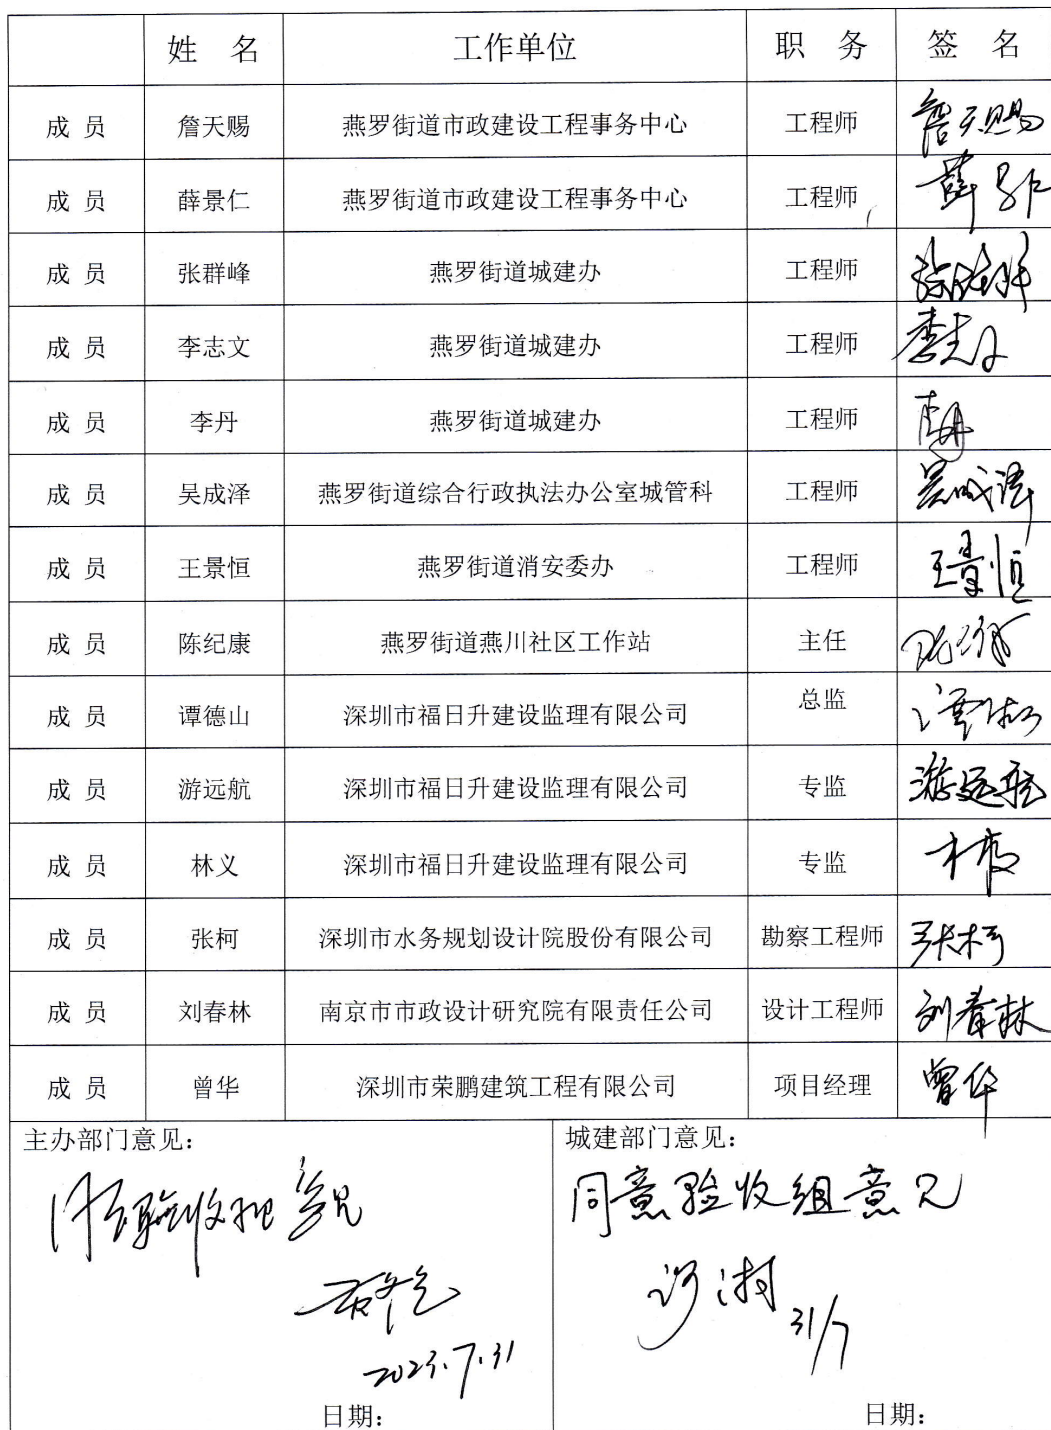 姓 名 工作单位 职 务 签 名
成 员 詹天赐 燕罗街道市政建设工程事务中心 工程师 詹天赐
成 员 薛景仁 燕罗街道市政建设工程事务中心 工程师 薛景仁
成 员 张群峰 燕罗街道城建办 工程师
成 员 李志文 燕罗街道城建办 工程师 李志文
成 员 李丹 燕罗街道城建办 工程师 李丹
成 员 吴成泽 燕罗街道综合行政执法办公室城管科 工程师 吴成泽
成 员 王景恒 燕罗街道消安委办 工程师 王景恒
成 员 陈纪康 燕罗街道燕川社区工作站 主任
成 员 谭德山 深圳市福日升建设监理有限公司 总监
成 员 游远航 深圳市福日升建设监理有限公司 专监 游远航
成 员 林义 深圳市福日升建设监理有限公司 专监
成 员 张柯 深圳市水务规划设计院股份有限公司 勘察工程师 张柯
成 员 刘春林 南京市市政设计研究院有限责任公司 设计工程师 刘春林
成 员 曾华 深圳市荣鹏建筑工程有限公司 项目经理 曾华
主办部门意见：
同意验收组意见
2023.7.31
日期：
城建部门意见：
同意验收组意见
31/7
日期：